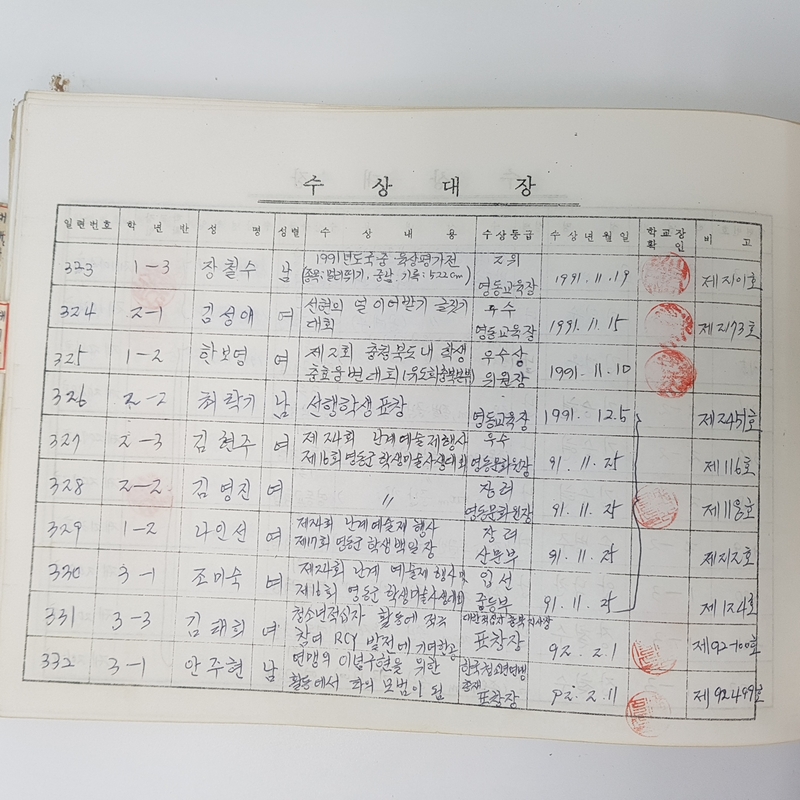 수 상 대 장
일련번호 학년반 성명 성별 수상내용 수상등급 수상년월일 학교장 확인 비고
323 1-3 장철수 남 1991년도 국중 육상평가전 2위 1991. 11. 19 제2101호
(종목: 멀리뛰기, 중남, 기록: 522cm) 영동교육장
324 2-1 김성애 여 선현의 얼 이어받기 글짓기 우수 1991. 11. 15 제2173호
대회 영동교육장
325 1-2 한보영 여 제2회 충청북도내 학생 우수상 1991. 11. 10
충효웅변대회 위원장
326 2-2 최학기 남 선행학생 표창 영동교육장 1991. 12. 5 제2451호
327 2-3 김현주 여 제24회 난계예술제행사 우수 91. 11. 25 제116호
제16회 영동군 학생미술사생대회 영동문화원장
328 2-2 김영진 여 〃 장려 91. 11. 25 제118호
영동문화원장
329 1-2 나인선 여 제24회 난계예술제 행사 장려 91. 11. 25 제212호
제17회 영동군 학생백일장 산문부
330 3-1 조미숙 여 제24회 난계 예술제 행사 및 입선 91. 11. 25 제124호
제16회 영동군 학생미술사생대회 중등부
331 3-3 김태희 여 청소년적십자 활동에 적극 대한적십자 충북지사장 92. 2. 1 제92-100호
참여 RCY 발전에 기여한공 표창장
332 3-1 안주현 남 연맹의 이념구현을 위한 한국청소년연맹 92. 2. 11 제92499호
활동에서 타의 모범이 됨 총재 표창장